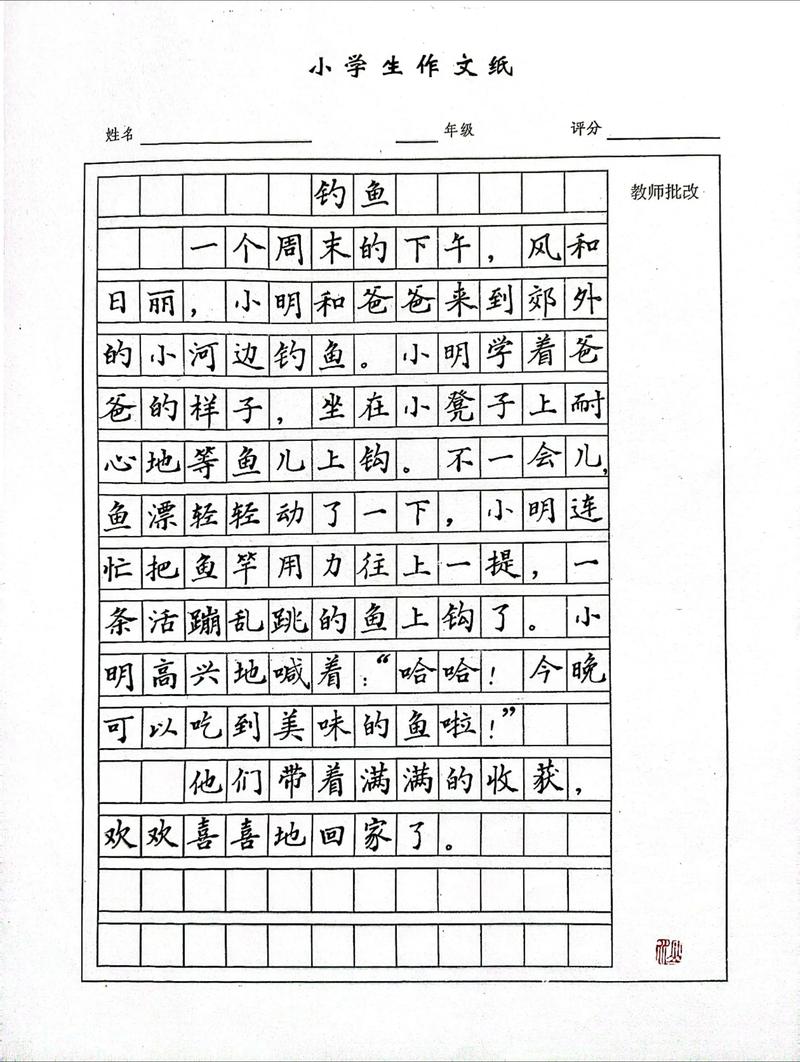 小学生作文纸
姓名 年级 评分
教师批改
钓鱼
一个周末的下午，风和
日丽，小明和爸爸来到郊外
的小河边钓鱼。小明学着爸
爸的样子，坐在小凳子上耐
心地等鱼儿上钩。不一会儿，
鱼漂轻轻动了一下，小明连
忙把鱼竿用力往上一提，一
条活蹦乱跳的鱼上钩了。小
明高兴地喊着：“哈哈！今晚
可以吃到美味的鱼啦！”
他们带着满满的收获，
欢欢喜喜地回家了。